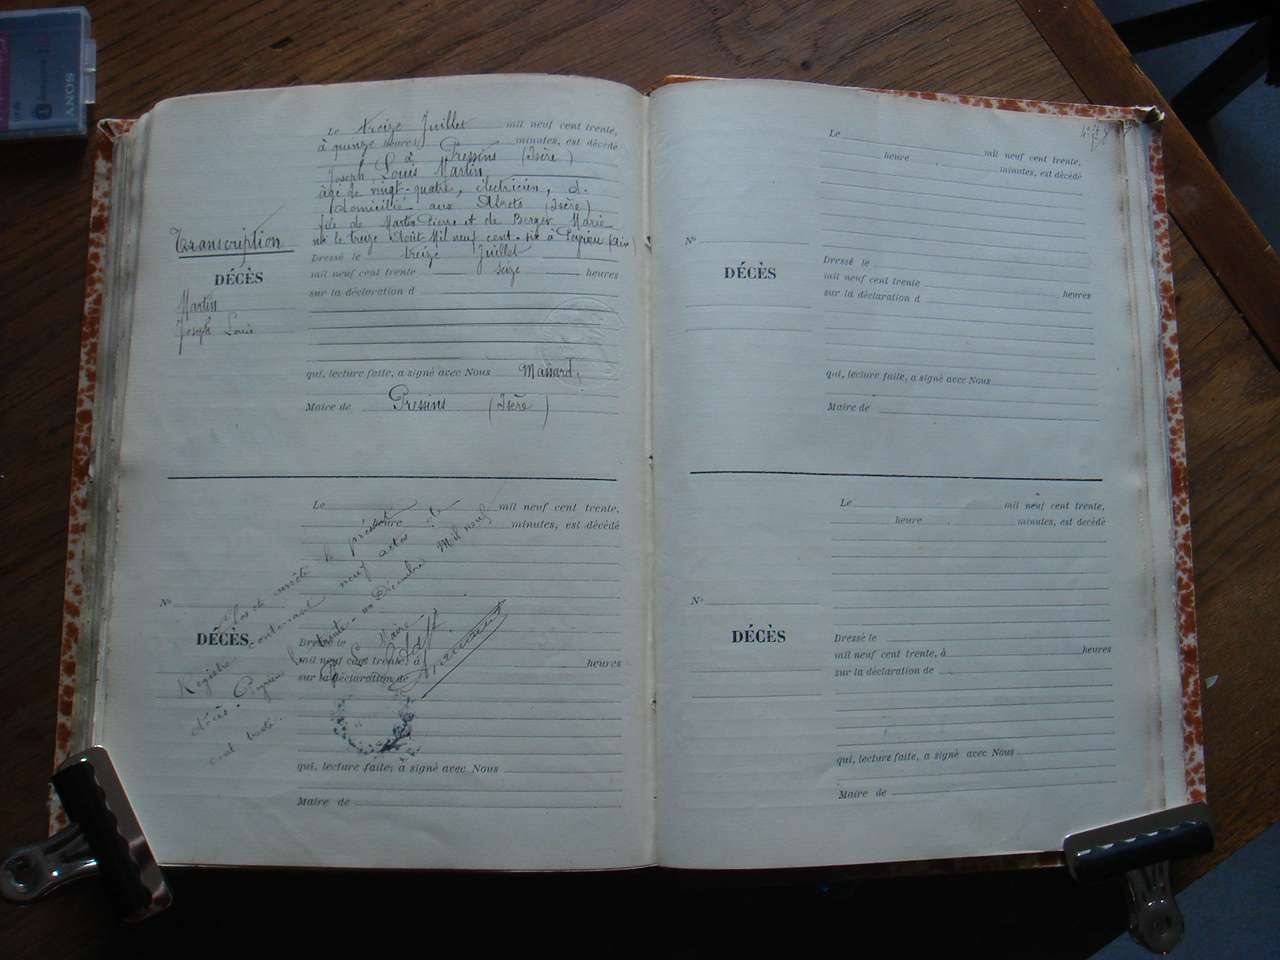 SONY
Le treize Juillet mil neuf cent trente,
à quinze heures minutes, est décédé
à Pressins (Isère)
Joseph, Louis Martin,
âgé de vingt-quatre, électricien,
domicilié aux Abrets (Isère)
fils de Martin Pierre et de Berger Marie
né le treize Août Mil neuf cent six à Peyrieu (Ain)
Transcription
DÉCÈS
Martin
Joseph Louis
Dressé le treize Juillet
mil neuf cent trente seize heures
sur la déclaration d
qui, lecture faite, a signé avec Nous Massard,
Maire de Pressins (Isère)
Le mil neuf cent trente,
heure minutes, est décédé
N°
DÉCÈS
Clos et arrêté le présent
Registre contenant neuf actes de
décès. Peyrieu le trente-un Décembre Mil neuf
cent trente.
Le Maire
Dressé le
mil neuf cent trente, à heures
sur la déclaration de
qui, lecture faite, a signé avec Nous
Maire de
Le mil neuf cent trente,
heure minutes, est décédé
N°
DÉCÈS
Dressé le
mil neuf cent trente
heures
sur la déclaration d
qui, lecture faite, a signé avec Nous
Maire de
Le mil neuf cent trente,
heure minutes, est décédé
N°
DÉCÈS
Dressé le
mil neuf cent trente, à heures
sur la déclaration de
qui, lecture faite, a signé avec Nous
Maire de